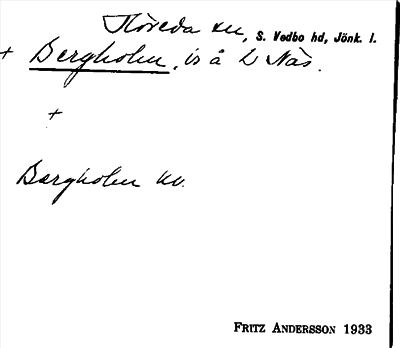 Höreda sn, S. Vedbo hd, Jönk. l.
+ Bergholm, is å L Näs.
+
Bargholm uv.
FRITZ ANDERSSON 1933